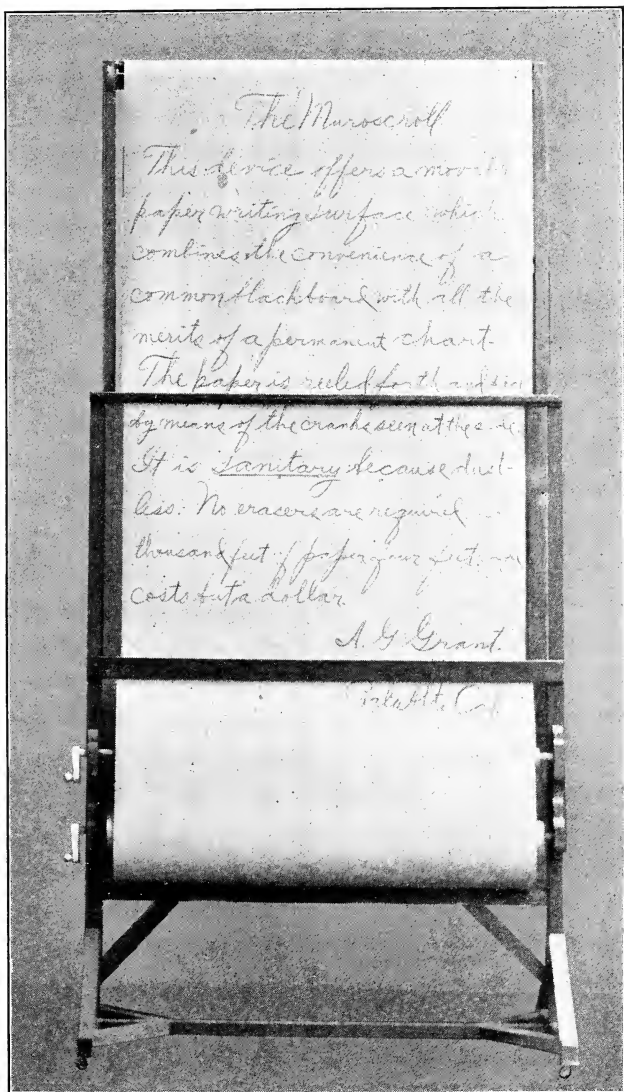 The Muroscroll
This device offers a
paper writing surface which
combines the convenience of a
common blackboard with all the
merits of a permanent chart-
The paper is reeled forth and
by means of the cranks seen at the
It is sanitary because dust-
less. No erasers are required
thousand feet of paper four feet
costs but a dollar
A. G. Grant.